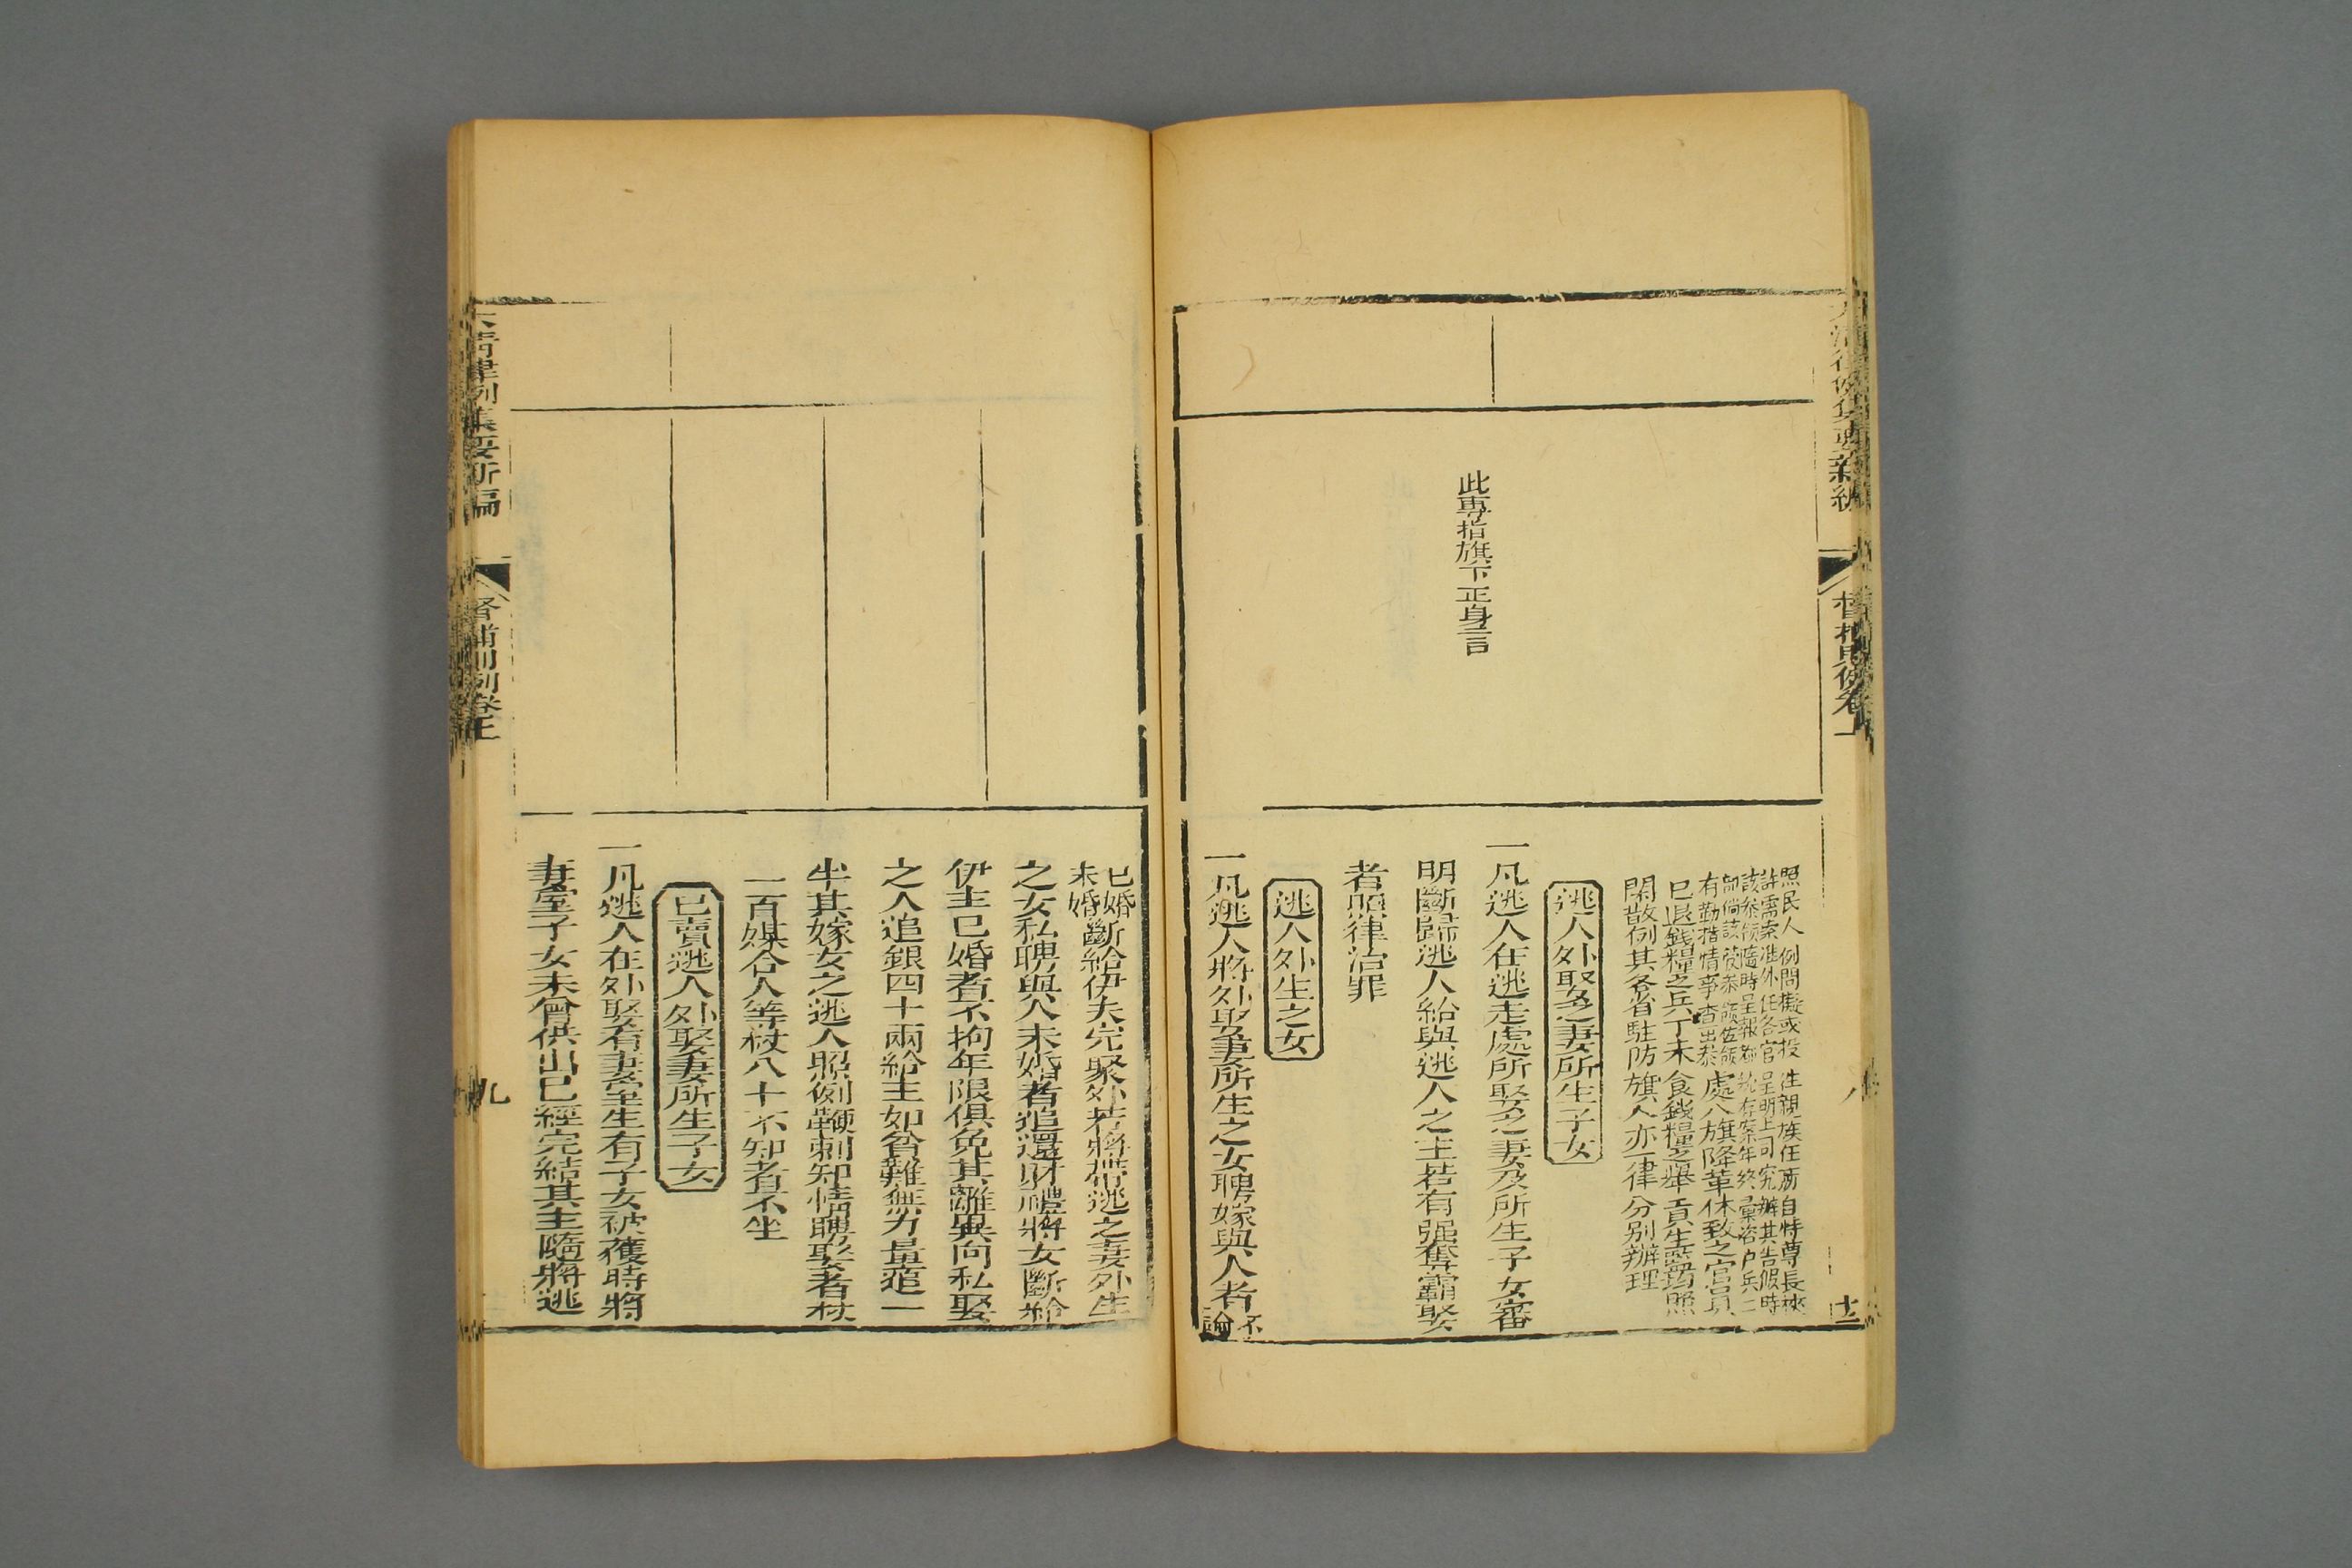 大清律例集要新編
督捕則例卷上
十二
照民人一例問擬或投往親族任所自恃尊長挾
許需索准外任各官呈明上司究辦其告假時
該叅領隨時呈報都統存案年終彙咨户兵二
部倘該管叅領佐領
有勒揹情事查出叅處八旗降革休致之官員
已退錢糧之兵丁未食錢糧之舉貢生監均照
閑散例其各省駐防旗人亦一律分別辦理
逃人外娶之妻所生子女
此專指旗下正身言
一凡逃人在逃走處所娶之妻及所生子女審
明斷歸逃人給與逃人之主若有强奪霸娶
者照律治罪
逃人外生之女
一凡逃人將外娶妻所生之女聘嫁與人者不論
已婚未婚斷給伊夫完聚外若將帶逃之妻外生
之女私聘與人未婚者追還財禮將女斷給
伊主已婚者不拘年限俱免其離異向私娶
之人追銀四十兩給主如貧難無力量追一
半其嫁女之逃人照例鞭刺知情聘娶者杖
一百媒合人等杖八十不知者不坐
已賣逃人外娶妻所生子女
一凡逃人在外娶有妻室生有子女被獲時將
妻室子女未曾供出已經完結其主隨將逃
大清律例集要新編
督捕則例卷上
九